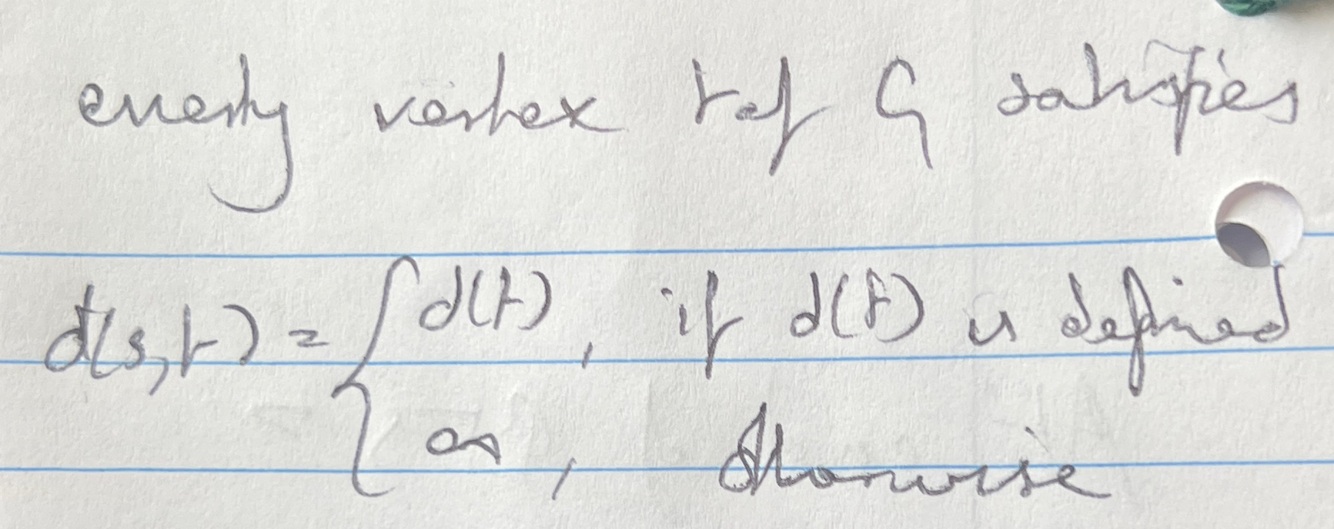 every vertex t of G satisfies
d(s,t) = { d(t), if d(t) is defined
∞, otherwise